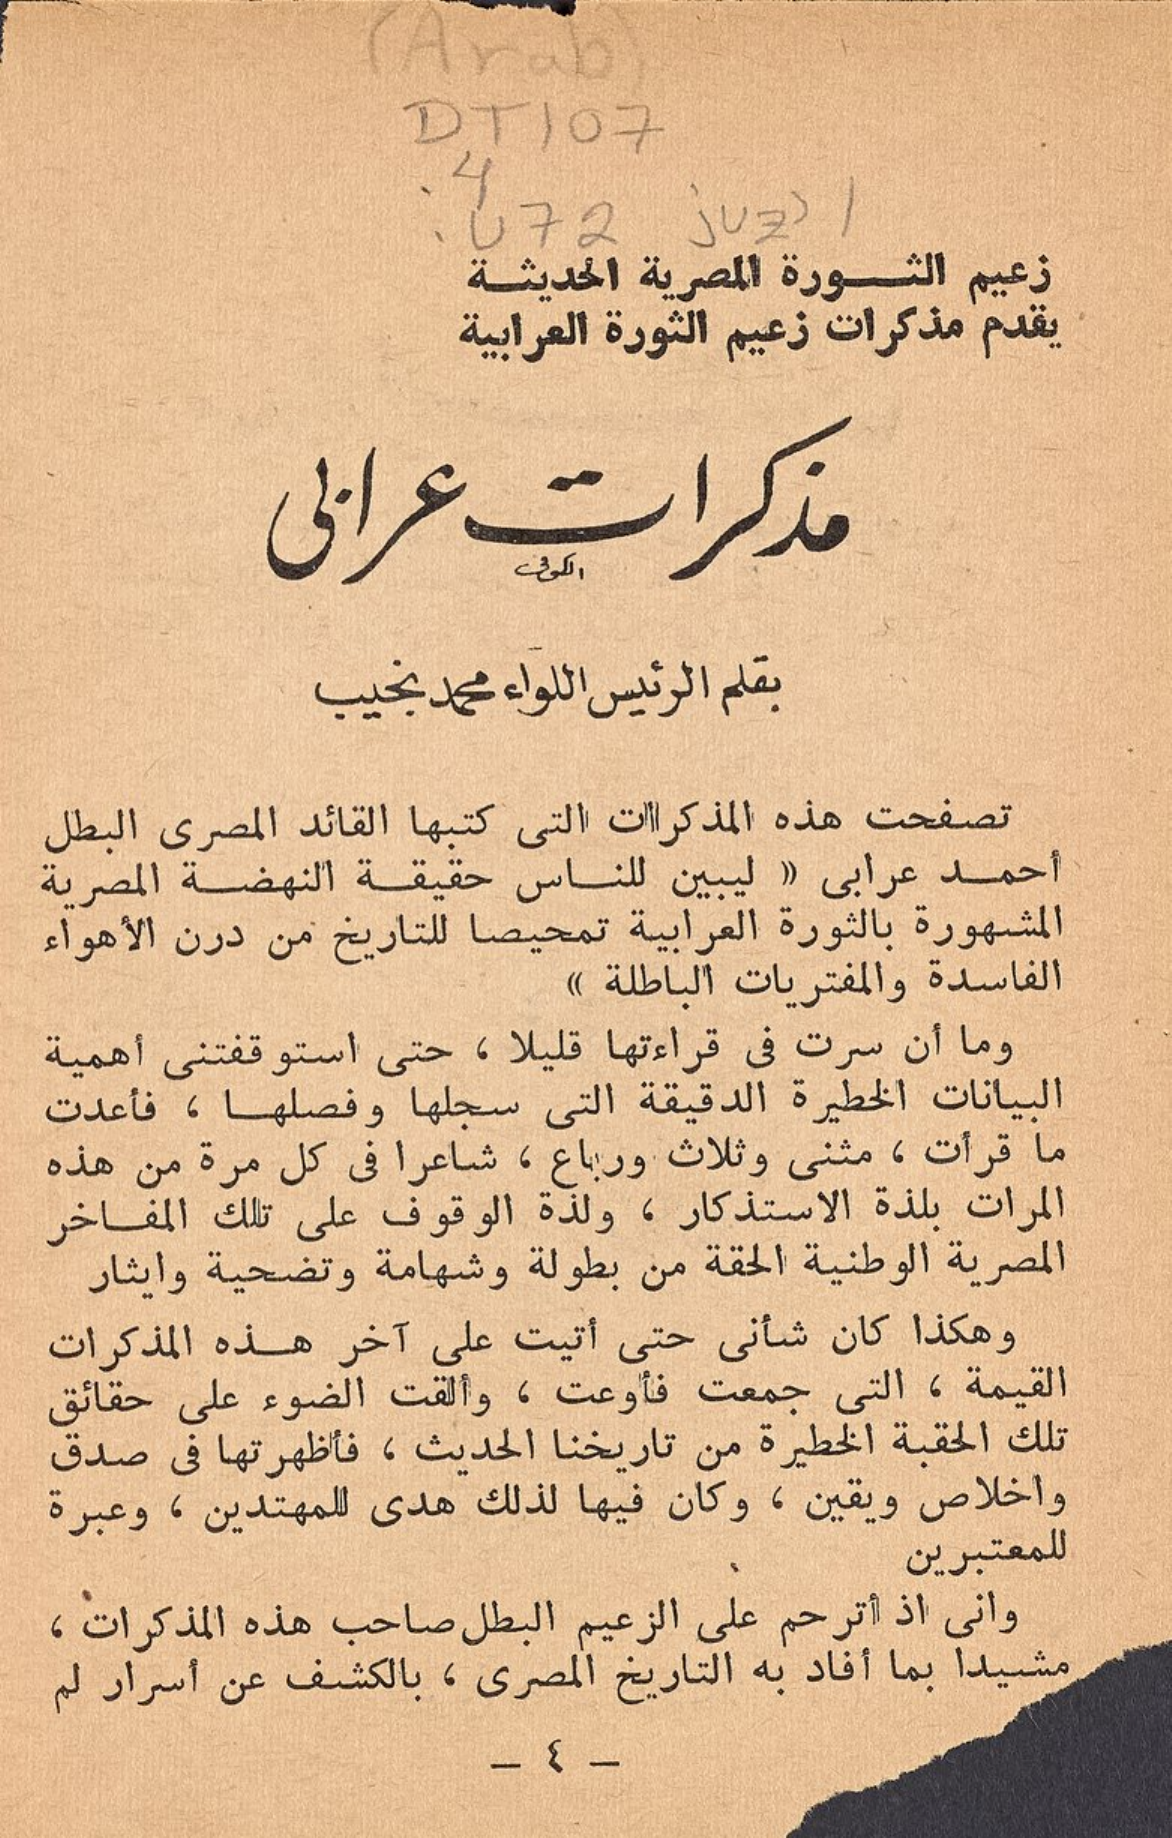 (Arab)
DT107
.4
.U72 juz' 1
زعيم الثــــورة المصرية الحديثــة
يقدم مذكرات زعيم الثورة العرابية
مذكرات عرابى
بقلم الرئيس اللواء محمد نجيب
تصفحت هذه المذكرات التى كتبها القائد المصرى البطل
أحمــد عرابى « ليبين للنــاس حقيقــة النهضــة المصرية
المشهورة بالثورة العرابية تمحيصا للتاريخ من درن الأهواء
الفاسدة والمفتريات الباطلة »
وما أن سرت فى قراءتها قليلا ، حتى استوقفتنى أهمية
البيانات الخطيرة الدقيقة التى سجلها وفصلهــا ، فأعدت
ما قرأت ، مثنى وثلاث ورباع ، شاعرا فى كل مرة من هذه
المرات بلذة الاستذكار ، ولذة الوقوف على تلك المفــاخر
المصرية الوطنية الحقة من بطولة وشهامة وتضحية وايثار
وهكذا كان شأنى حتى أتيت على آخر هــذه المذكرات
القيمة ، التى جمعت فأوعت ، وألقت الضوء على حقائق
تلك الحقبة الخطيرة من تاريخنا الحديث ، فأظهرتها فى صدق
واخلاص ويقين ، وكان فيها لذلك هدى للمهتدين ، وعبرة
للمعتبرين
وانى اذ أترحم على الزعيم البطل صاحب هذه المذكرات ،
مشيدا بما أفاد به التاريخ المصرى ، بالكشف عن أسرار لم
— ٤ —